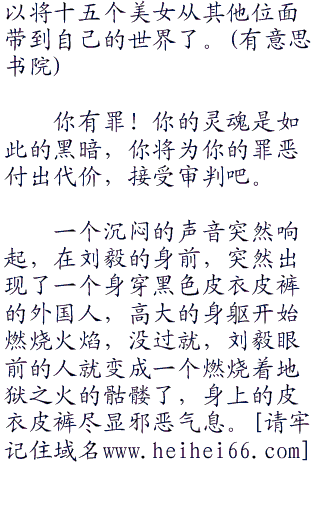 以将十五个美女从其他位面
带到自己的世界了。(有意思
书院)
你有罪！你的灵魂是如
此的黑暗，你将为你的罪恶
付出代价，接受审判吧。
一个沉闷的声音突然响
起，在刘毅的身前，突然出
现了一个身穿黑色皮衣皮裤
的外国人，高大的身躯开始
燃烧火焰，没过就，刘毅眼
前的人就变成一个燃烧着地
狱之火的骷髅了，身上的皮
衣皮裤尽显邪恶气息。[请牢
记住域名www.heihei66.com]